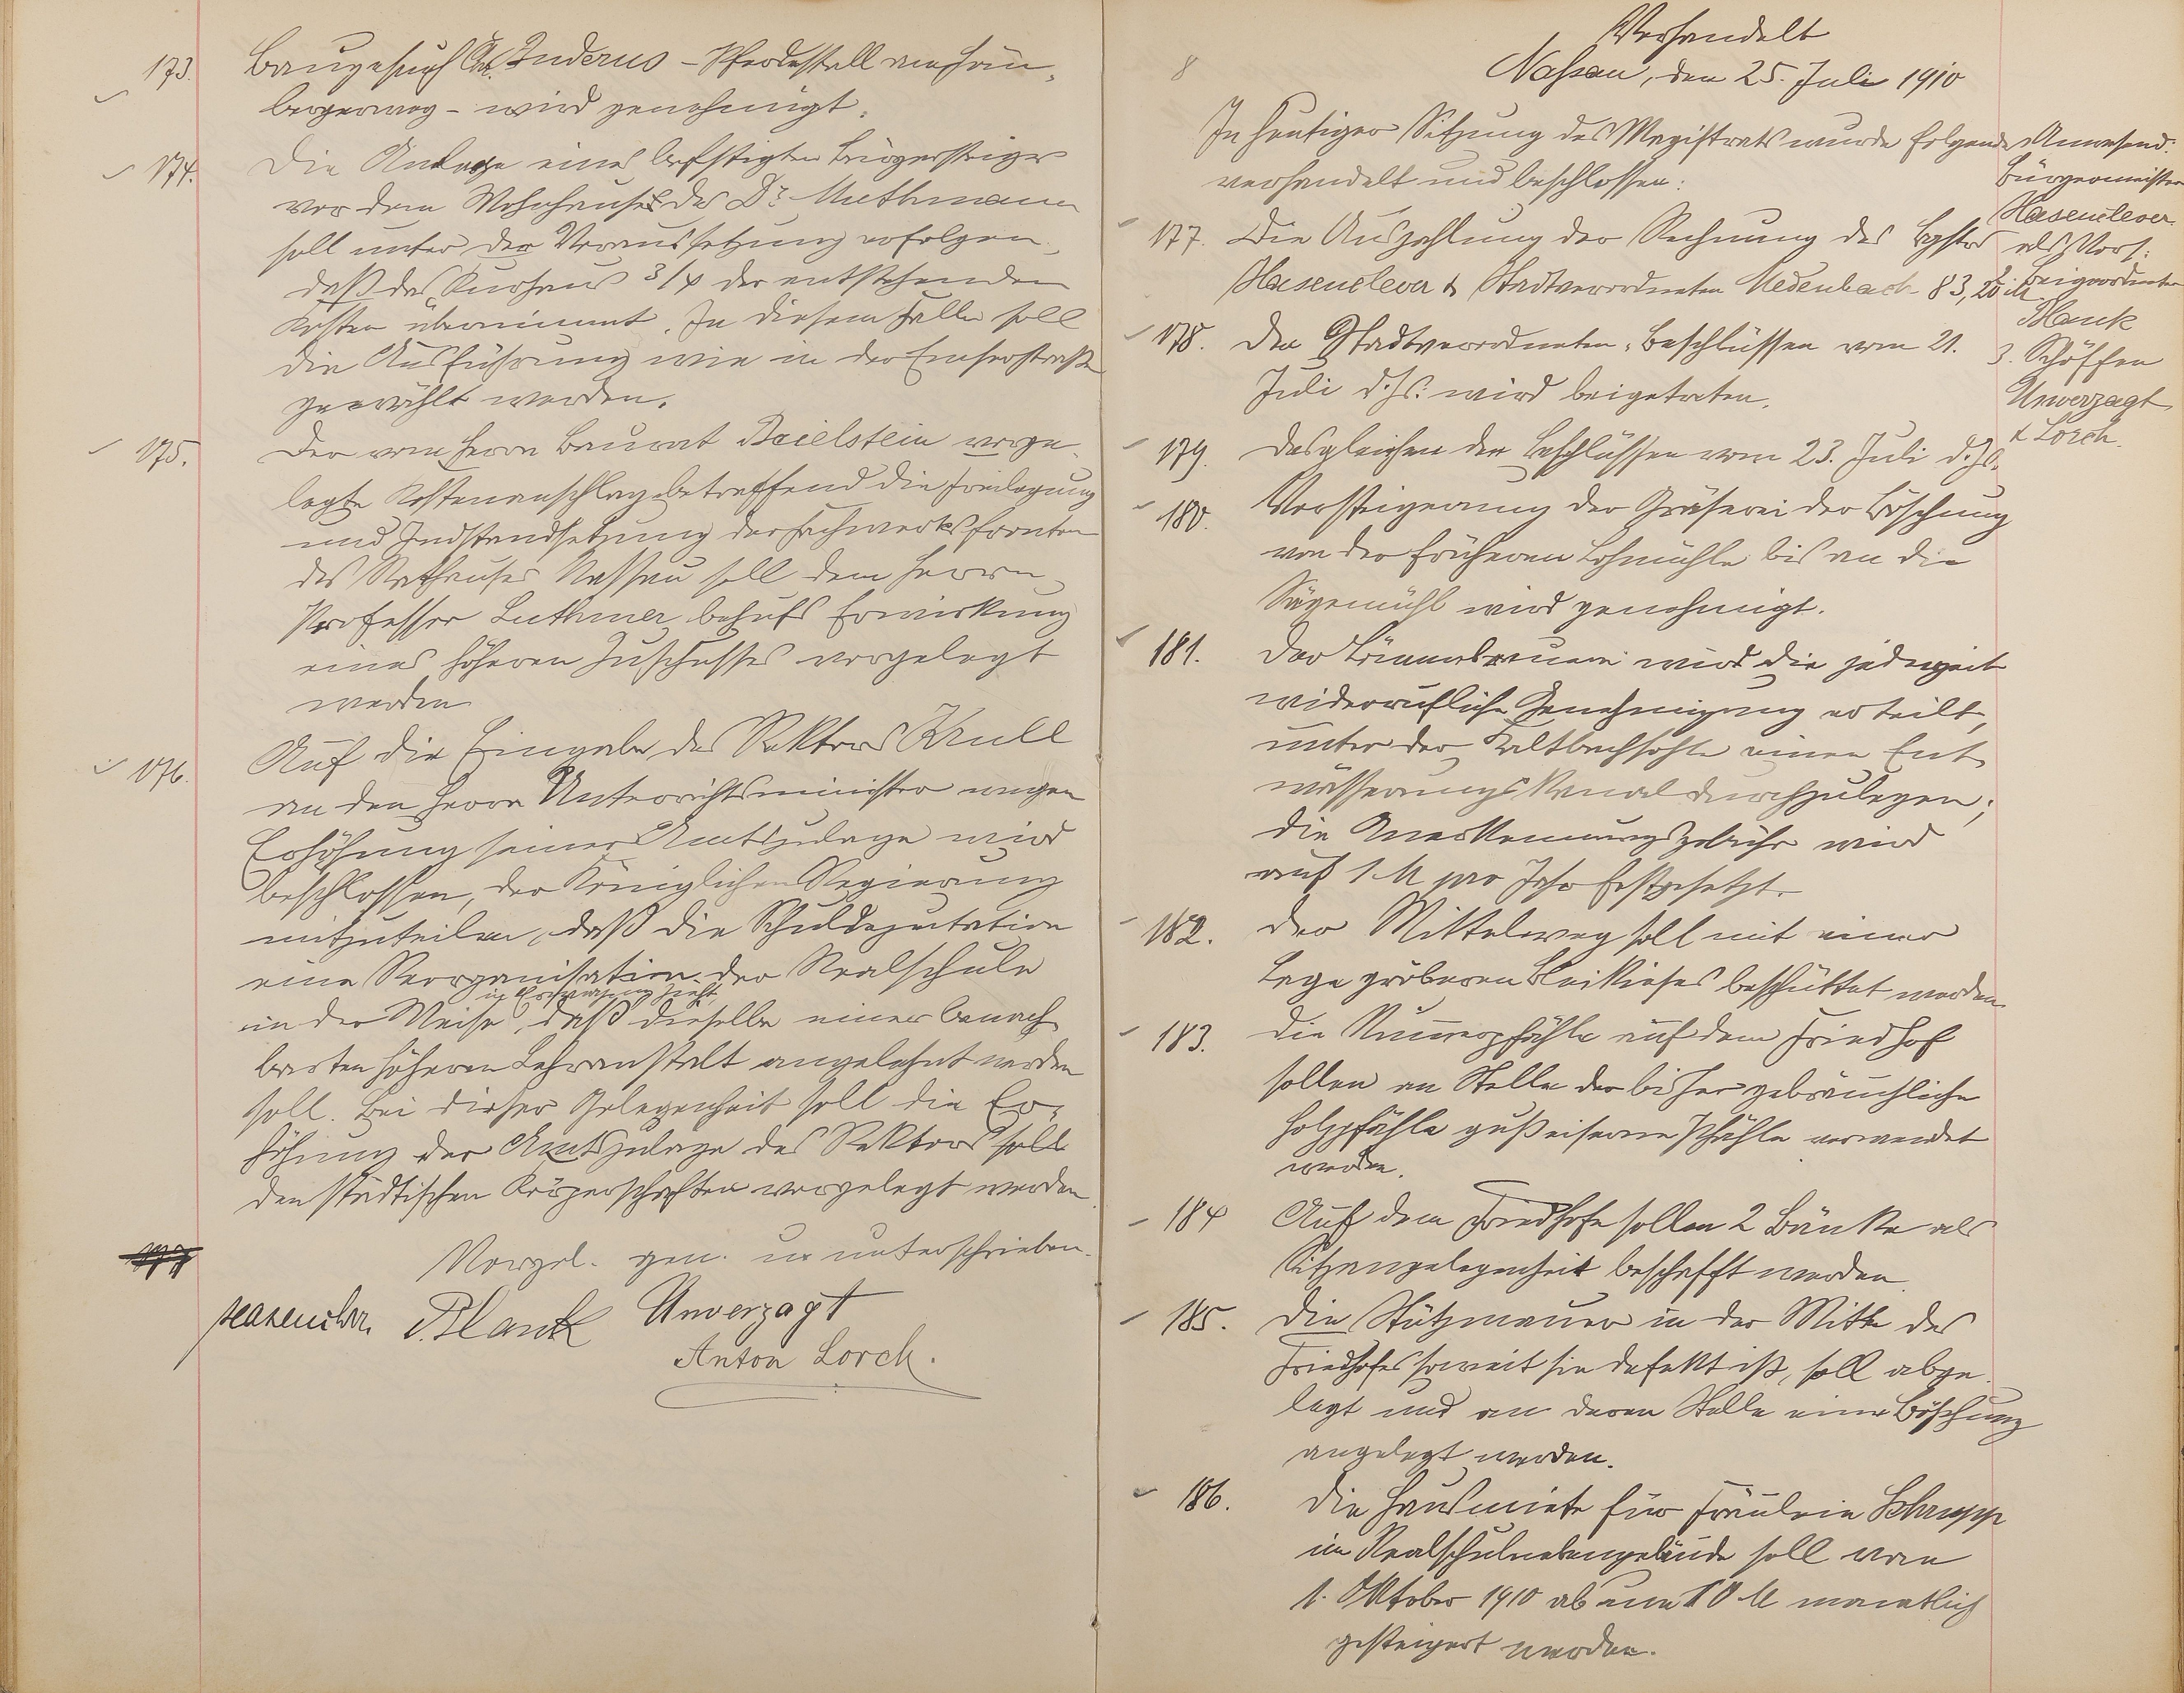 173. Baugesuch Chr. Buderus – Pferdestall am Hain-
bergerweg – wird genehmigt.
174. Die Anlage eines befestigten Bürgersteiges
vor dem Wohnhause des Dr. Muthmann
soll unter der Voraussetzung erfolgen,
daß das Kurhaus 3/4 der entstehenden
Kosten übernimmt. In diesem Falle soll
die Ausführung wie in der Emserstraße
gewählt werden.
175. Der vom Herrn Baurat Beielstein vorge-
legte Kostenanschlag betreffend die Freilegung
und Indstandsetzung der Fachwerksfronten
des Rathauses Nassau soll dem Herrn
Professor Luthmer behufs Erwirkung
eines höheren Zuschusses vorgelegt
werden
176. Auf die Eingabe des Rektors Krull
an den Herrn Unterrichtsminister wegen
Erhöhung seiner Amtszulage wird
beschlossen, der Königlichen Regierung
mitzuteilen, daß die Schuldeputation
eine Reorganisation der Realschule
in Erwägung zieht,
in der Weise, daß dieselbe einer benach-
barten höheren Lehranstalt angelehnt werden
soll. Bei dieser Gelegenheit soll die Er-
höhung der Amtszulage des Rektors soll
den städtischen Körperschaften vorgelegt werden.
177
Vorgel. gen. u. unterschrieben.
Hasenclever. Blank Unverzagt
Anton Lorch.
8
Verhandelt
Nassau, den 25. Juli 1910
In heutiger Sitzung des Magistrats wurde folgendes
verhandelt und beschlossen:
Anwesend:
Bürgermeister
Hasenclever
als Vors.
2. Beigeordneter
Blank
3. Schöffen
Unverzagt
& Lorch.
177. Die Auszahlung der Rechnung des Bgstrs
Hasenclever & Stadtverordneten Medenbach 83,20 M.
178. Den Stadtverordneten-Beschlüssen vom 21.
Juli d. Js. wird beigetreten.
179. Desgleichen den Beschlüssen vom 23. Juli d. Js.
180. Versteigerung der Gräserei der Böschung
von der früheren Lohmühle bis an die
Sägemühl wird genehmigt.
181. Der Löwenbrauerei wird die jederzeit
widerrufliche Genehmigung erteilt,
unter der Kaltbachsohle einen Ent-
wässerungskanal durchzulegen;
die Anerkennungsgebühr wird
auf 1 M pro Jahr festgesetzt.
182. Der Mittelweg soll mit einer
Lage gröberen Bleikieses beschüttet werden.
183. Die Numerpfähle auf dem Friedhof
sollen an Stelle der bisher gebräuchliche
Holzpfähle gußeiserne Pfähle verwendet
werden.
184 Auf dem Friedhofe sollen 2 Bänke als
Sitzengelegenheit beschafft werden
185. Die Stützmauer in der Mitte des
Friedhofes soweit sie defekt ist, soll abge-
legt und an deren Stelle eine Böschung
angelegt werden.
186. Die Hausmiete für Fräulein Schrupp
im Realschulnebengebäude soll vom
1. Oktober 1910 ab um 10 M monatlich
gesteigert werden.